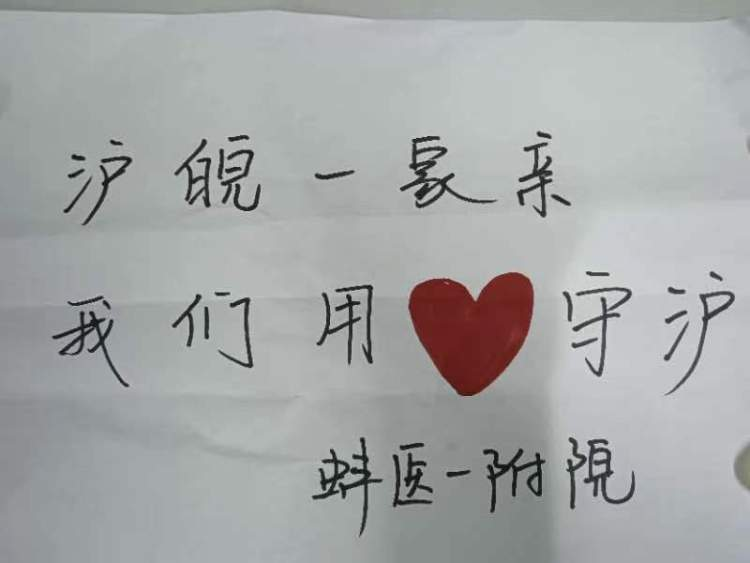 沪皖一家亲
我们用❤守沪
蚌医一附院